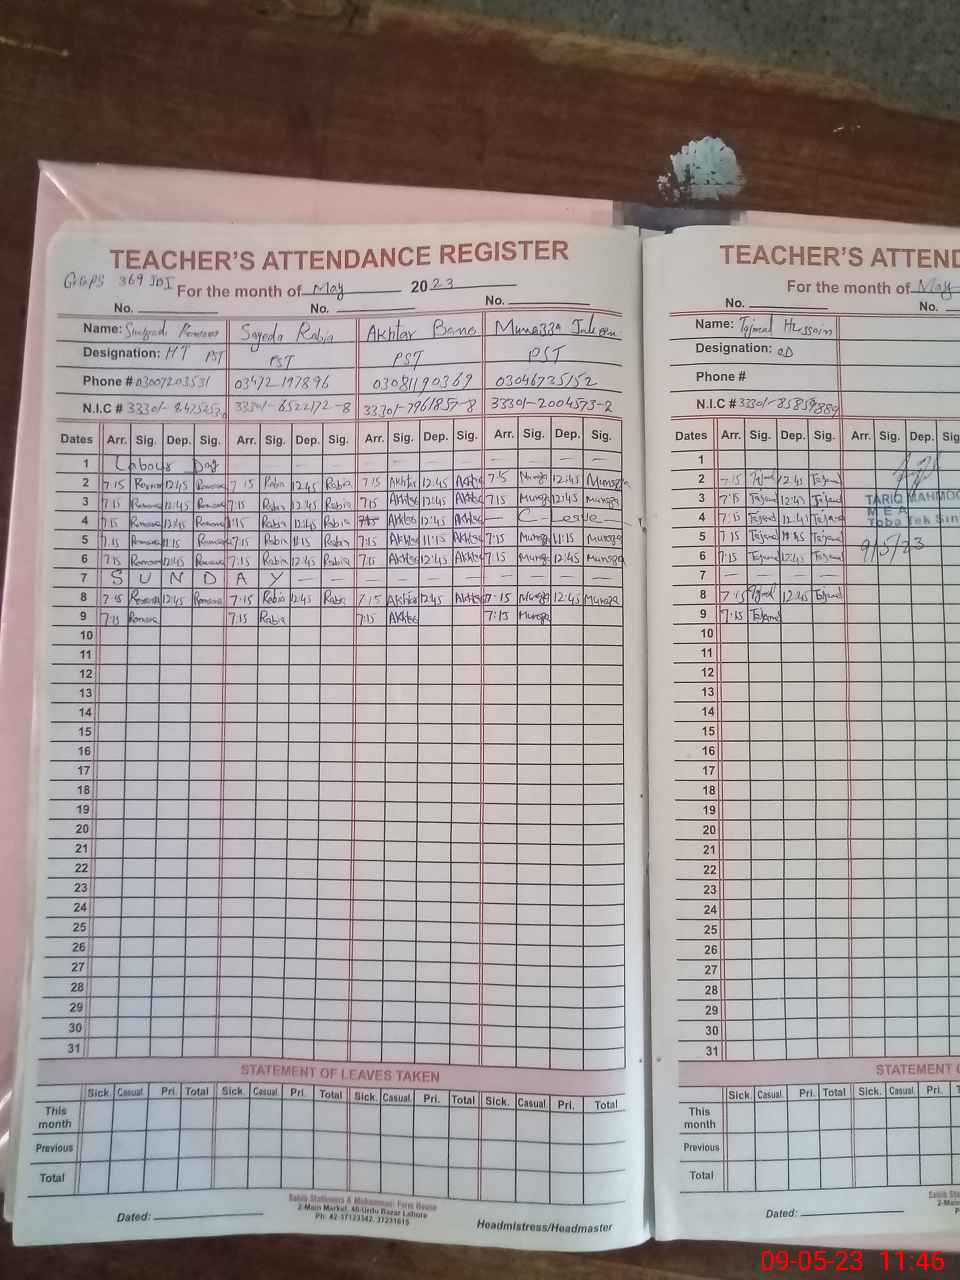 TEACHER'S ATTENDANCE REGISTER
GGPS 369 JBI For the month of May 2023
No. No. No.
Name: Sayeda Rabia Akhtar Bano Munazza
Designation: HT PST PST PST PST
Phone # 03007203531 03472-197896 03081190369 03046735152
N.I.C # 33301-6522172-8 33301-7961857-8 33301-2004573-2
Dates Arr. Sig. Dep. Sig. Arr. Sig. Dep. Sig. Arr. Sig. Dep. Sig. Arr. Sig. Dep. Sig.
1 Labour Day
2 7:15 12:45 7:15 Rabia 12:45 Rabia 7:15 Akhtar 12:45 Akhtar 7:15 12:45
3 7:15 12:45 7:15 Rabia 12:45 Rabia 7:15 Akhtar 12:45 Akhtar 7:15 12:45
4 7:15 12:45 Rabia 12:45 Rabia Akhtar 12:45 Akhtar C-Leave
5 7:15 11:15 7:15 Rabia 11:15 Rabia 7:15 Akhtar 11:15 Akhtar 7:15 11:15
6 7:15 12:45 7:15 Rabia 12:45 Rabia 7:15 Akhtar 12:45 Akhtar 7:15 12:45
7 S U N D A Y
8 7:15 12:45 7:15 Rabia 12:45 Rabia 7:15 Akhtar 12:45 Akhtar 7:15 12:45
9 7:15 7:15 Rabia 7:15 Akhtar 7:15
10
11
12
13
14
15
16
17
18
19
20
21
22
23
24
25
26
27
28
29
30
31
STATEMENT OF LEAVES TAKEN
Sick. Casual. Pri. Total Sick. Casual. Pri. Total Sick. Casual. Pri. Total Sick. Casual. Pri. Total
This month
Previous
Total
Dated:
2-Main Market, 40-Urdu Bazar Lahore
Ph: 42-37123342, 37231615
Headmistress/Headmaster
TEACHER'S ATTEND
For the month of May
No. No.
Name: Tajmal Hussain
Designation:
Phone #
N.I.C #
Dates Arr. Sig. Dep. Sig. Arr. Sig. Dep. Sig
1
2 7:15 Tajmal 12:45 Tajmal
3 7:15 Tajmal 12:45 Tajmal
TARIQ MAHMOO
4 7:15 Tajmal 12:45 Tajmal
MEA
Toba Tek Sin
5 7:15 Tajmal Tajmal
9/5/23
6 7:15 Tajmal 12:45 Tajmal
7
8 7:15 Tajmal 12:45 Tajmal
9 7:15 Tajmal
10
11
12
13
14
15
16
17
18
19
20
21
22
23
24
25
26
27
28
29
30
31
STATEMENT O
Sick. Casual. Pri. Total Sick. Casual. Pri.
This month
Previous
Total
Dated:
09-05-23 11:46